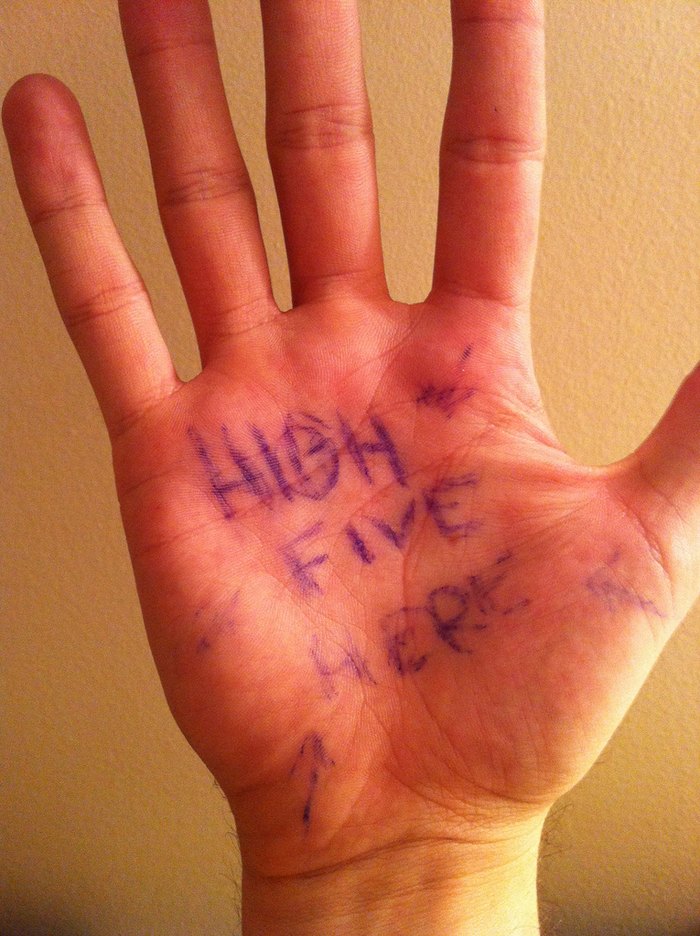 HIGH
FIVE
HERE